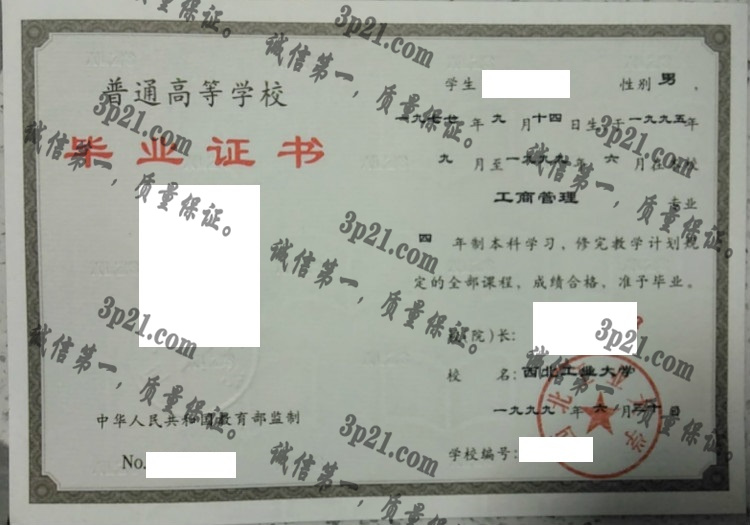 普通高等学校
毕业证书
中华人民共和国教育部监制
No.
学生 性别 男 ,
一九七七年九月十四日生于一九九五年
九月至一九九九年六月在本校
工商管理 专业
四年制本科学习,修完教学计划规
定的全部课程,成绩合格,准予毕业。
(院)长:
校 名:西北工业大学
一九九九年六月二十日
学校编号:
西北工业大学
3p21.com
诚信第一,质量保证。
3p21.com
诚信第一,质量保证。
3p21.com
诚信第一,质量保证。
3p21.com
诚信第一,质量保证。
3p21.com
诚信第一,质量保证。
3p21.com
诚信第一,质量保证。
3p21.com
诚信第一,质量保证。
质量保证。